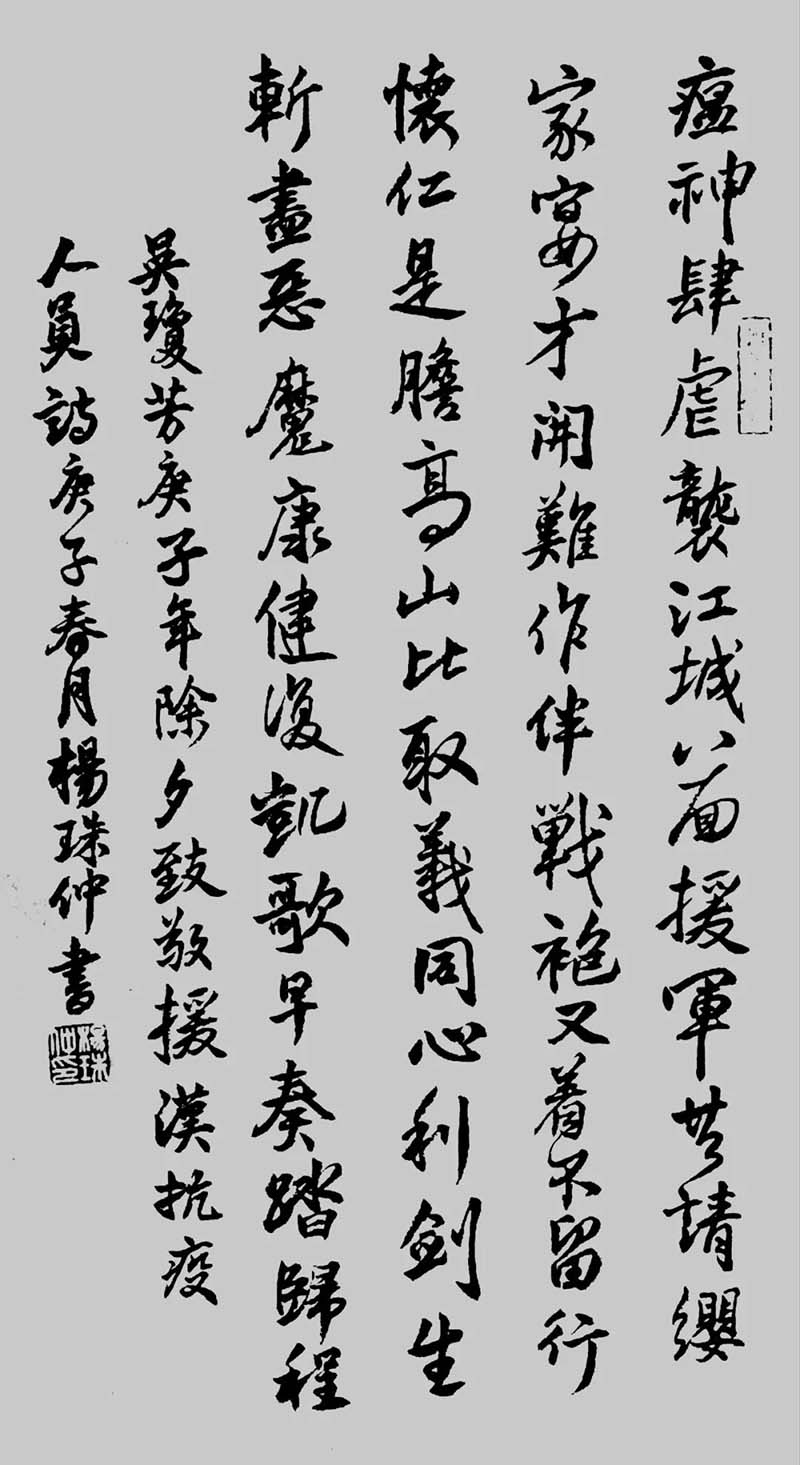 瘟神肆虐襲江城八面援軍共請纓
家宴才開難作伴戰袍又着不留行
懷仁是膽高山比取義同心利劍生
斬盡惡魔康健復凱歌早奏踏歸程
吳瓊芳庚子年除夕致敬援漢抗疫
人員詩庚子春月楊珠仲書
楊珠仲印